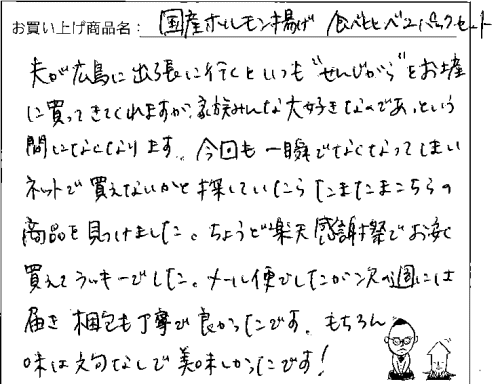 お買い上げ商品名： 国産ホルモン揚げ 食べくらべ2パックセット
夫が広島に出張に行くといつも"せんじがら"をお土産
に買ってきてくれますが、家族みんな大好きなのであっという
間になくなります。今回も一瞬でなくなってしまい
ネットで買えないかと探していたらたまたまこちらの
商品を見つけました。ちょうど楽天感謝祭でお安く
買えてラッキーでした。メール便でしたが次の週には
届き梱包も丁寧で良かったです。もちろん
味は文句なしで美味しかったです！